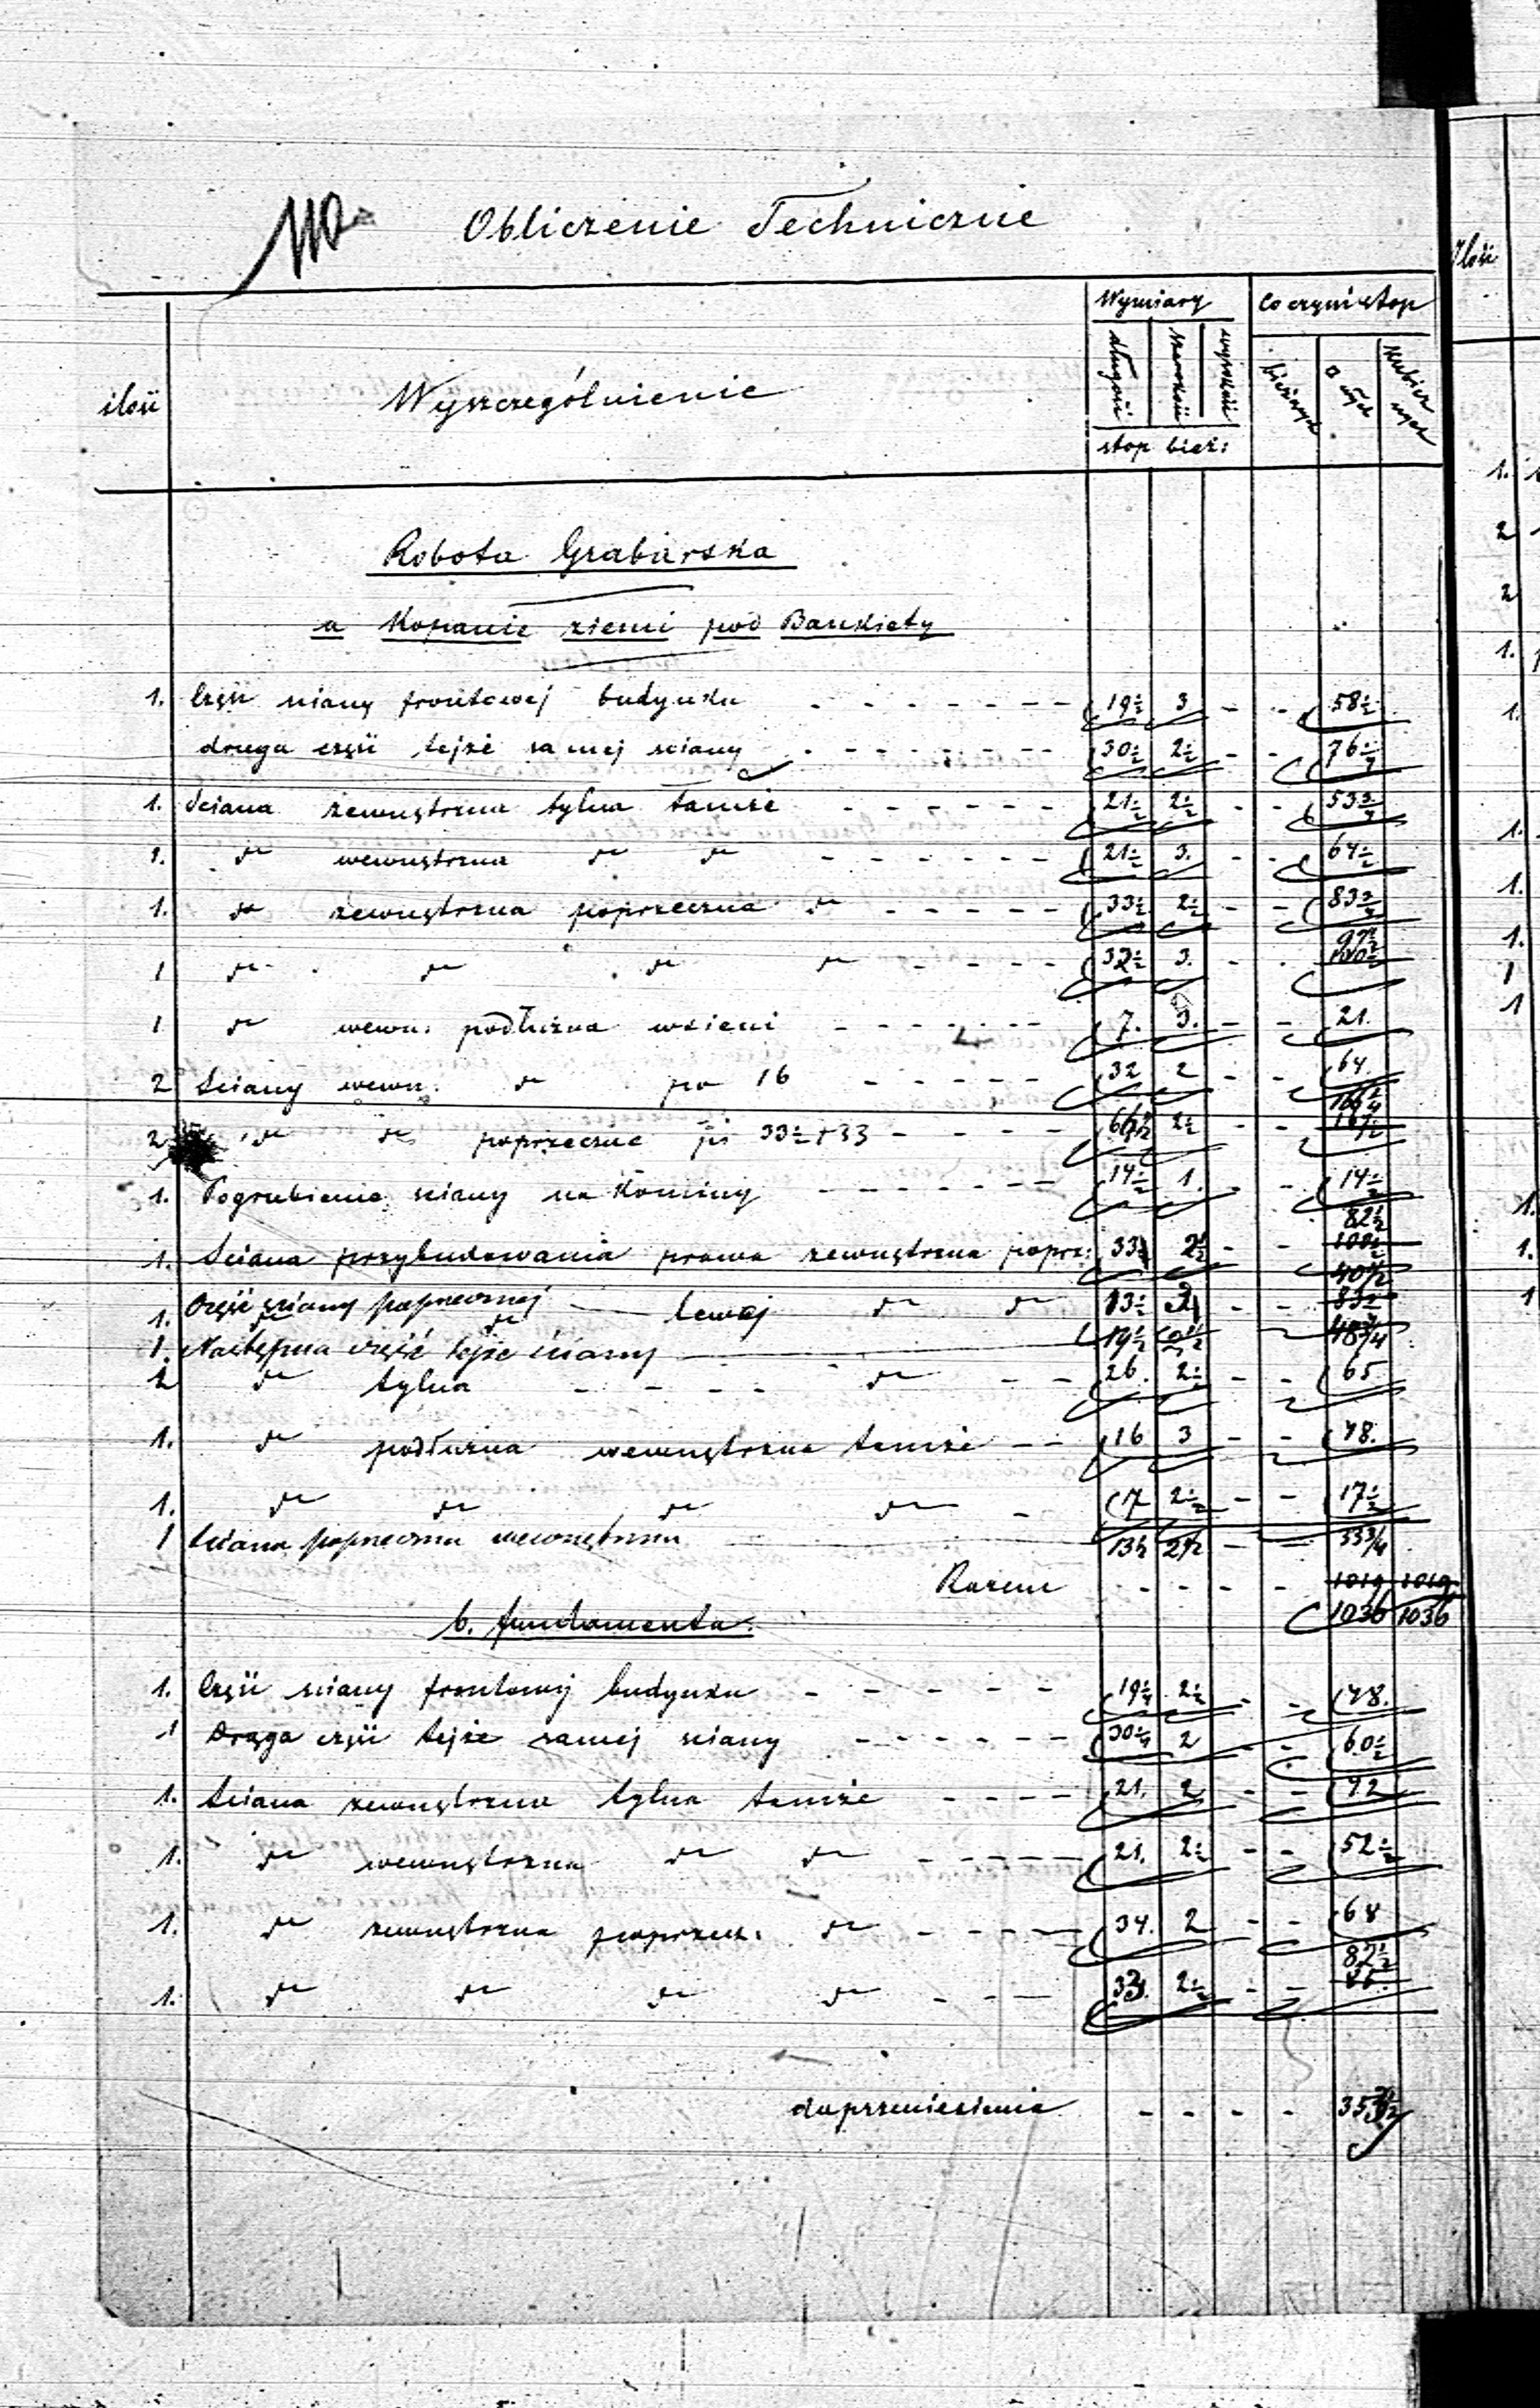 110
Obliczenie Techniczne
ilość Wyszczególnienie Wymiary Co czyni stop
długość szerokość wysokość bieżących □ wych kubicznych
stop bież:
Robota Grabarska
a Kopanie ziemi pod Bankiety
1. Część sciany frontowej budynku - - - - - - 19½ 3 - - 58½
druga część tejże samej sciany - - - - - - 30½ 2½ - - 76¼
1. Sciana zewnętrzna tylna tamże - - - - - - 21½ 2½ - - 53¾
1. do wewnętrzna do do - - - - - - 21½ 3. - - 64½
1. do zewnętrzna poprzeczna do - - - - - 33½ 2½ - - 83¾
1 do do do do - - - - 32½ 3. - - 97½
1 do wewn: podłużna wsieni - - - - - 7. 3. - - 21.
2 Sciany wewn. do po 16 - - - - - 32 2 - - 64.
2 do do poprzeczne po 33½ + 33 - - - - 66½ 2½ - - 166¼
1. Pogrubienie sciany na Kominy - - - - - 14½ 1. - - 14½
1. Sciana przybudowania prawa zewnętrzna poprz: 33 2½ - - 82½
1. Część sciany poprzecznej lewej do do 13½ 3 - - 40½
1. Następna część tejże ściany 19½ 2½ 48¾
1 do tylna - - - - do - - 26. 2½ - - 65
1. do podłużna wewnętrzna tamże - - 16 3 - - 48.
1. do do do do - 7 2½ - - 17½
1 Sciana poprzeczna wewnętrzna 13½ 2½ - - 33¾
Razem - - - - 1019 1019
1036 1036
b. fundamenta.
1. Część sciany frontowej budynku - - - - - 19¼ 2½ - - 48.
1 Druga część tejże samej sciany - - - - - - 30¼ 2 - - 60½
1. Sciana zewnętrzna tylna tamże - - - - 21. 2 - - 42
1. do wewnętrzna do do - - - - - 21. 2½ - - 52½
1. do zewnętrzna poprzecz. do - - - - 34. 2 - - 68
1. do do do do - - - 33. 2½ - - 82½
do przeniesienia - - - - 353½